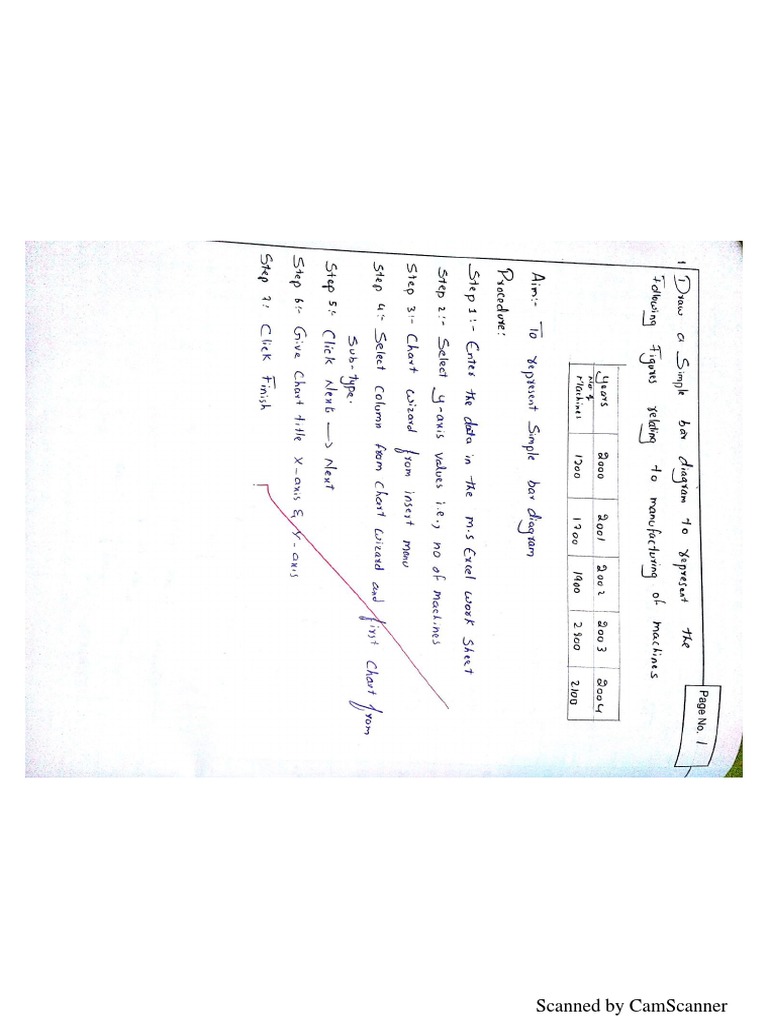 Page No. 1
1 Draw a Simple bar diagram to represent the
following Figures relating to manufacturing of machines
Years 2000 2001 2002 2003 2004
No of Machines 1200 1700 1900 2900 2100
Aim:- To represent Simple bar diagram
Procedure:
Step 1:- Enter the data in the m.s Excel work Sheet
Step 2:- Select y-axis values i.e., no of machines
Step 3:- Chart wizard from insert menu
Step 4:- Select column from chart wizard and first chart from
Sub-type.
Step 5:- Click Next → Next
Step 6:- Give Chart title X-axis & Y-axis
Step 7:- Click Finish
Scanned by CamScanner